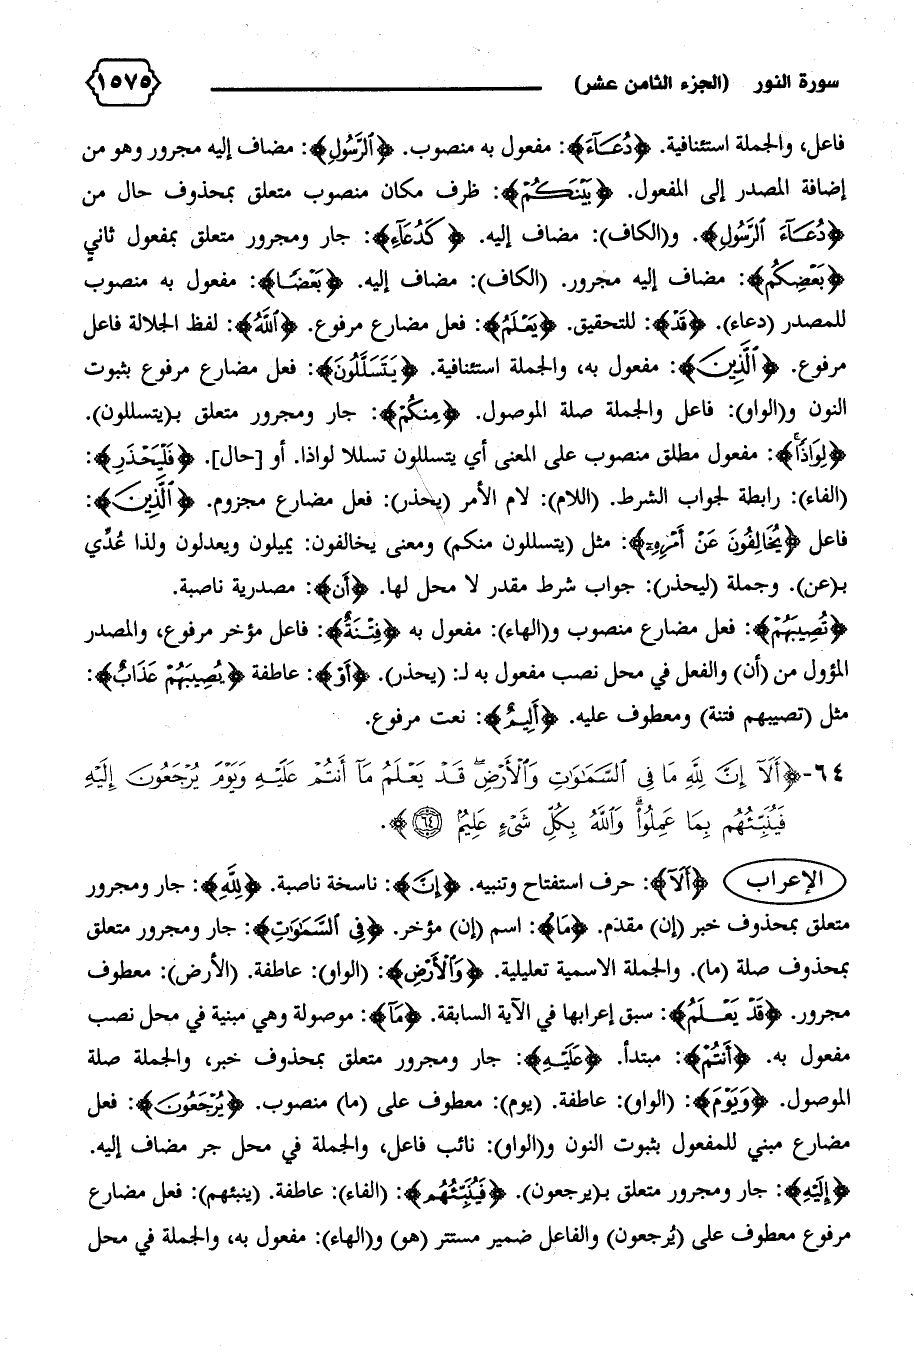 سورة النور (الجزء الثامن عشر) ١٥٧٥
فاعل، والجملة استئنافية. ﴿دُعَآءَ﴾: مفعول به منصوب. ﴿ٱلرَّسُولِ﴾: مضاف إليه مجرور وهو من
إضافة المصدر إلى المفعول. ﴿بَيْنَكُمْ﴾: ظرف مكان منصوب متعلق بمحذوف حال من
﴿دُعَآءَ ٱلرَّسُولِ﴾. و(الكاف): مضاف إليه. ﴿كَدُعَآءِ﴾: جار ومجرور متعلق بمفعول ثاني
﴿بَعْضِكُم﴾: مضاف إليه مجرور. (الكاف): مضاف إليه. ﴿بَعْضًا﴾: مفعول به منصوب
للمصدر (دعاء). ﴿قَدْ﴾: للتحقيق. ﴿يَعْلَمُ﴾: فعل مضارع مرفوع. ﴿ٱللَّهُ﴾: لفظ الجلالة فاعل
مرفوع. ﴿ٱلَّذِينَ﴾: مفعول به، والجملة استئنافية. ﴿يَتَسَلَّلُونَ﴾: فعل مضارع مرفوع بثبوت
النون و(الواو): فاعل والجملة صلة الموصول. ﴿مِنكُمْ﴾: جار ومجرور متعلق بـ(يتسللون).
﴿لِوَاذًا ۚ﴾: مفعول مطلق منصوب على المعنى أي يتسللون تسللا لواذا. أو [حال]. ﴿فَلْيَحْذَرِ﴾:
(الفاء): رابطة لجواب الشرط. (اللام): لام الأمر (يحذر): فعل مضارع مجزوم. ﴿ٱلَّذِينَ﴾:
فاعل ﴿يُخَالِفُونَ عَنْ أَمْرِهِۦٓ﴾: مثل (يتسللون منكم) ومعنى يخالفون: يميلون ويعدلون ولذا عُدِّي
بـ(عن). وجملة (ليحذر): جواب شرط مقدر لا محل لها. ﴿أَن﴾: مصدرية ناصبة.
﴿تُصِيبَهُمْ﴾: فعل مضارع منصوب و(الهاء): مفعول به ﴿فِتْنَةٌ﴾: فاعل مؤخر مرفوع، والمصدر
المؤول من (أن) والفعل في محل نصب مفعول به لـ: (يحذر). ﴿أَوْ﴾: عاطفة ﴿يُصِيبَهُمْ عَذَابٌ﴾:
مثل (تصيبهم فتنة) ومعطوف عليه. ﴿أَلِيمٌ﴾: نعت مرفوع.
٦٤-﴿أَلَآ إِنَّ لِلَّهِ مَا فِى ٱلسَّمَـٰوَٰتِ وَٱلْأَرْضِ ۖ قَدْ يَعْلَمُ مَآ أَنتُمْ عَلَيْهِ وَيَوْمَ يُرْجَعُونَ إِلَيْهِ
فَيُنَبِّئُهُم بِمَا عَمِلُوا۟ ۗ وَٱللَّهُ بِكُلِّ شَىْءٍ عَلِيمٌۢ ٦٤﴾.
الإعراب ﴿أَلَآ﴾: حرف استفتاح وتنبيه. ﴿إِنَّ﴾: ناسخة ناصبة. ﴿لِلَّهِ﴾: جار ومجرور
متعلق بمحذوف خبر (إن) مقدّم. ﴿مَا﴾: اسم (إن) مؤخر. ﴿فِى ٱلسَّمَـٰوَٰتِ﴾: جار ومجرور متعلق
بمحذوف صلة (ما). والجملة الاسمية تعليلية. ﴿وَٱلْأَرْضِ﴾: (الواو): عاطفة. (الأرض): معطوف
مجرور. ﴿قَدْ يَعْلَمُ﴾: سبق إعرابها في الآية السابقة. ﴿مَآ﴾: موصولة وهي مبنية في محل نصب
مفعول به. ﴿أَنتُمْ﴾: مبتدأ. ﴿عَلَيْهِ﴾: جار ومجرور متعلق بمحذوف خبر، والجملة صلة
الموصول. ﴿وَيَوْمَ﴾: (الواو): عاطفة. (يوم): معطوف على (ما) منصوب. ﴿يُرْجَعُونَ﴾: فعل
مضارع مبني للمفعول بثبوت النون و(الواو): نائب فاعل، والجملة في محل جر مضاف إليه.
﴿إِلَيْهِ﴾: جار ومجرور متعلق بـ(يرجعون). ﴿فَيُنَبِّئُهُم﴾: (الفاء): عاطفة. (ينبئهم): فعل مضارع
مرفوع معطوف على (يُرجعون) والفاعل ضمير مستتر (هو) و(الهاء): مفعول به، والجملة في محل